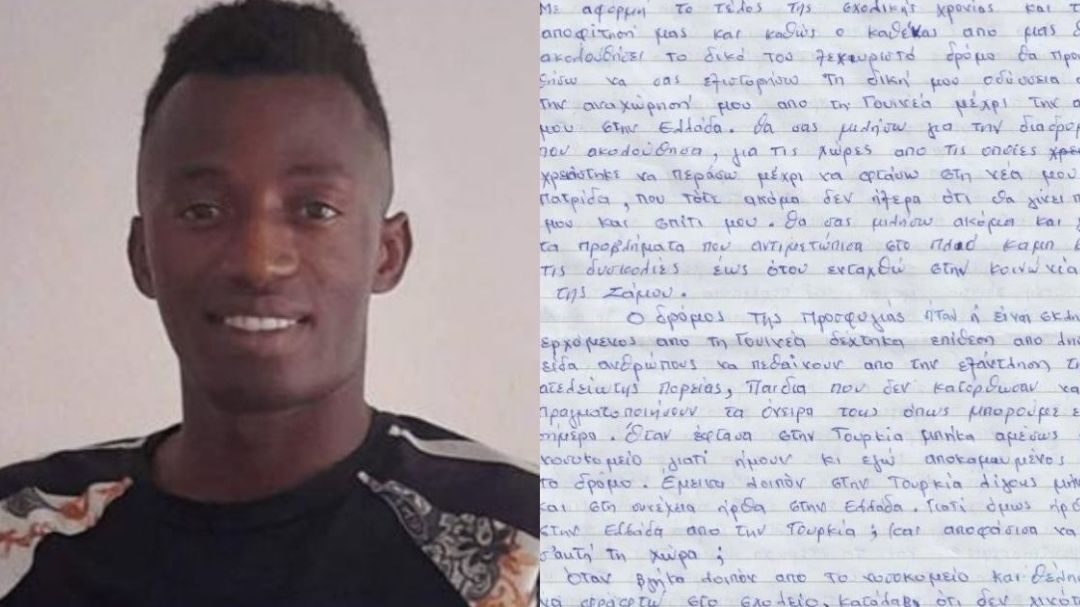 Με αφορμή το τέλος της σχολικής χρονιάς και τ
αποφίτησή μας και καθώς ο καθένας από μας
ακολουθήσει το δικό του ξεχωριστό δρόμο θα προ
θήσω να σας εξιστορήσω τη δική μου οδύσσεια
την αναχώρησή μου από τη Γουινέα μέχρι την α
μου στην Ελλάδα. Θα σας μιλήσω για την διαδρομ
που ακολούθησα, για τις χώρες από τις οποίες
χρειάστηκε να περάσω μέχρι να φτάσω στη νέα μου
πατρίδα, που τότε ακόμα δεν ήξερα ότι θα γίνει π
μου και σπίτι μου. Θα σας μιλήσω ακόμα και
τα προβλήματα που αντιμετώπισα στο καμπ
τις δυσκολίες έως ότου ενταχθώ στην κοινωνία
της Σάμου.
Ο δρόμος της προσφυγιάς ήταν ή είναι σκλη
ερχόμενος από τη Γουινέα δέχτηκα επίθεση από λησ
είδα ανθρώπους να πεθαίνουν από την εξάντληση τ
ατελείωτης πορείας, Παιδια που δεν κατόρθωσαν να
πραγματοποιήσουν τα όνειρα τους όπως μπορούμε ε
σήμερα. Όταν έφτασα στην Τουρκία μπήκα αμέσως
νοσοκομείο γιατί ήμουν κι εγώ αποκαμωμένος
το δρόμο. Έμεινα λοιπόν στην Τουρκία λίγους μήν
και στη συνέχεια ήρθα στην Ελλάδα. Γιατί όμως ήρθ
στην Ελλάδα από την Τουρκία; και αποφάσισα να
σ'αυτή τη χώρα;
Όταν βγήκα λοιπόν από το νοσοκομείο και θέλησ
να στο σχολείο, κατάλαβα ότι δεν